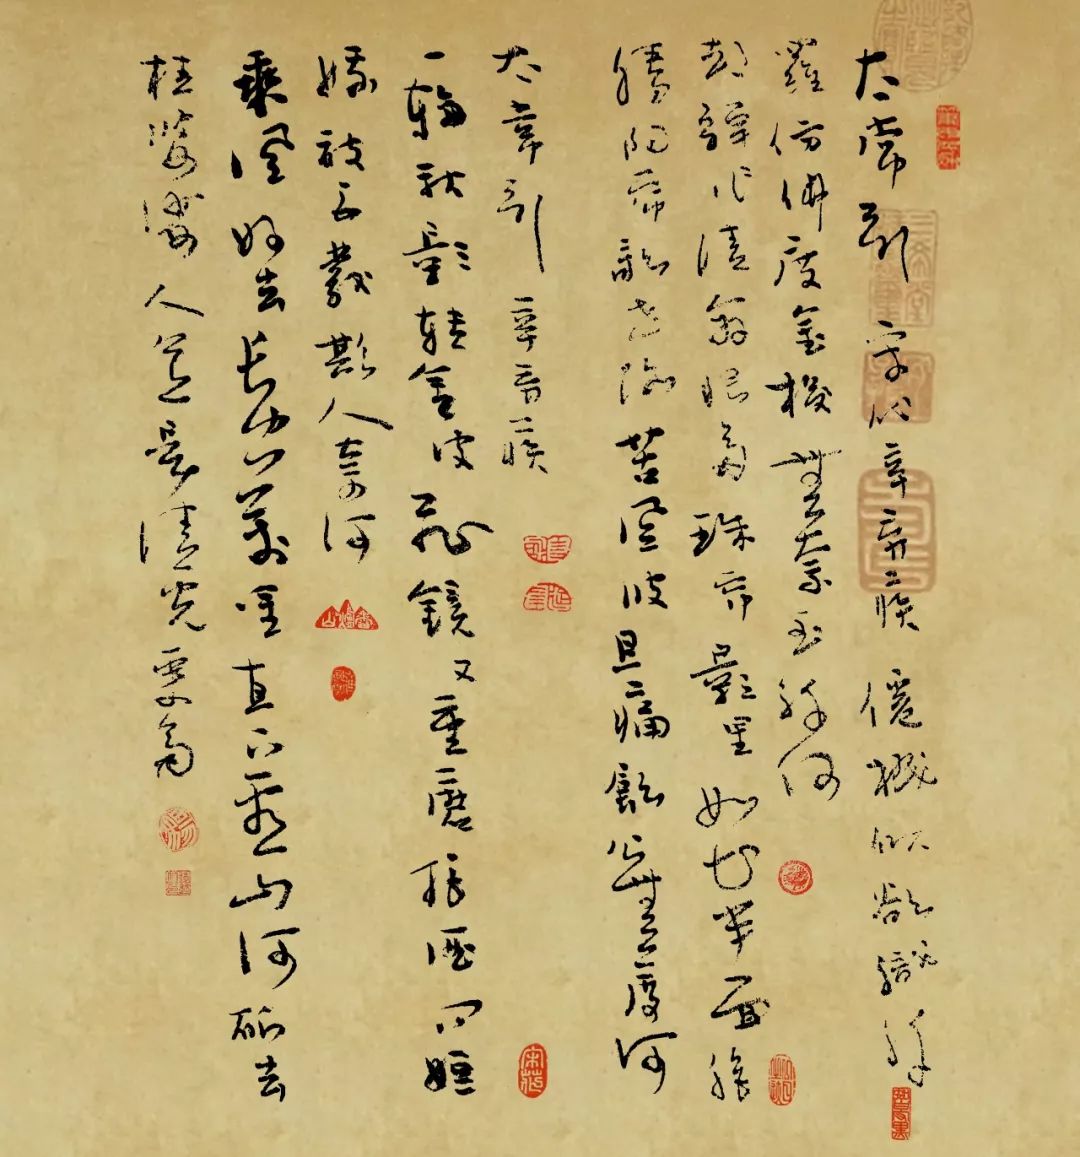 太常引 宋代 辛弃疾 僊機似欲織纤
羅仿佛度金梭無奈玉纤何
却彈作清商恨多珠帘影里如花半面絶
勝隔帘歌世路苦風波且痛飲公無渡河
太常引 辛弃疾
一輪秋影轉金波飛鏡又重磨把酒问姮
娥被白髮欺人奈何
乘風好去長空萬里直下看山河斫去
桂婆娑人道是清光更多